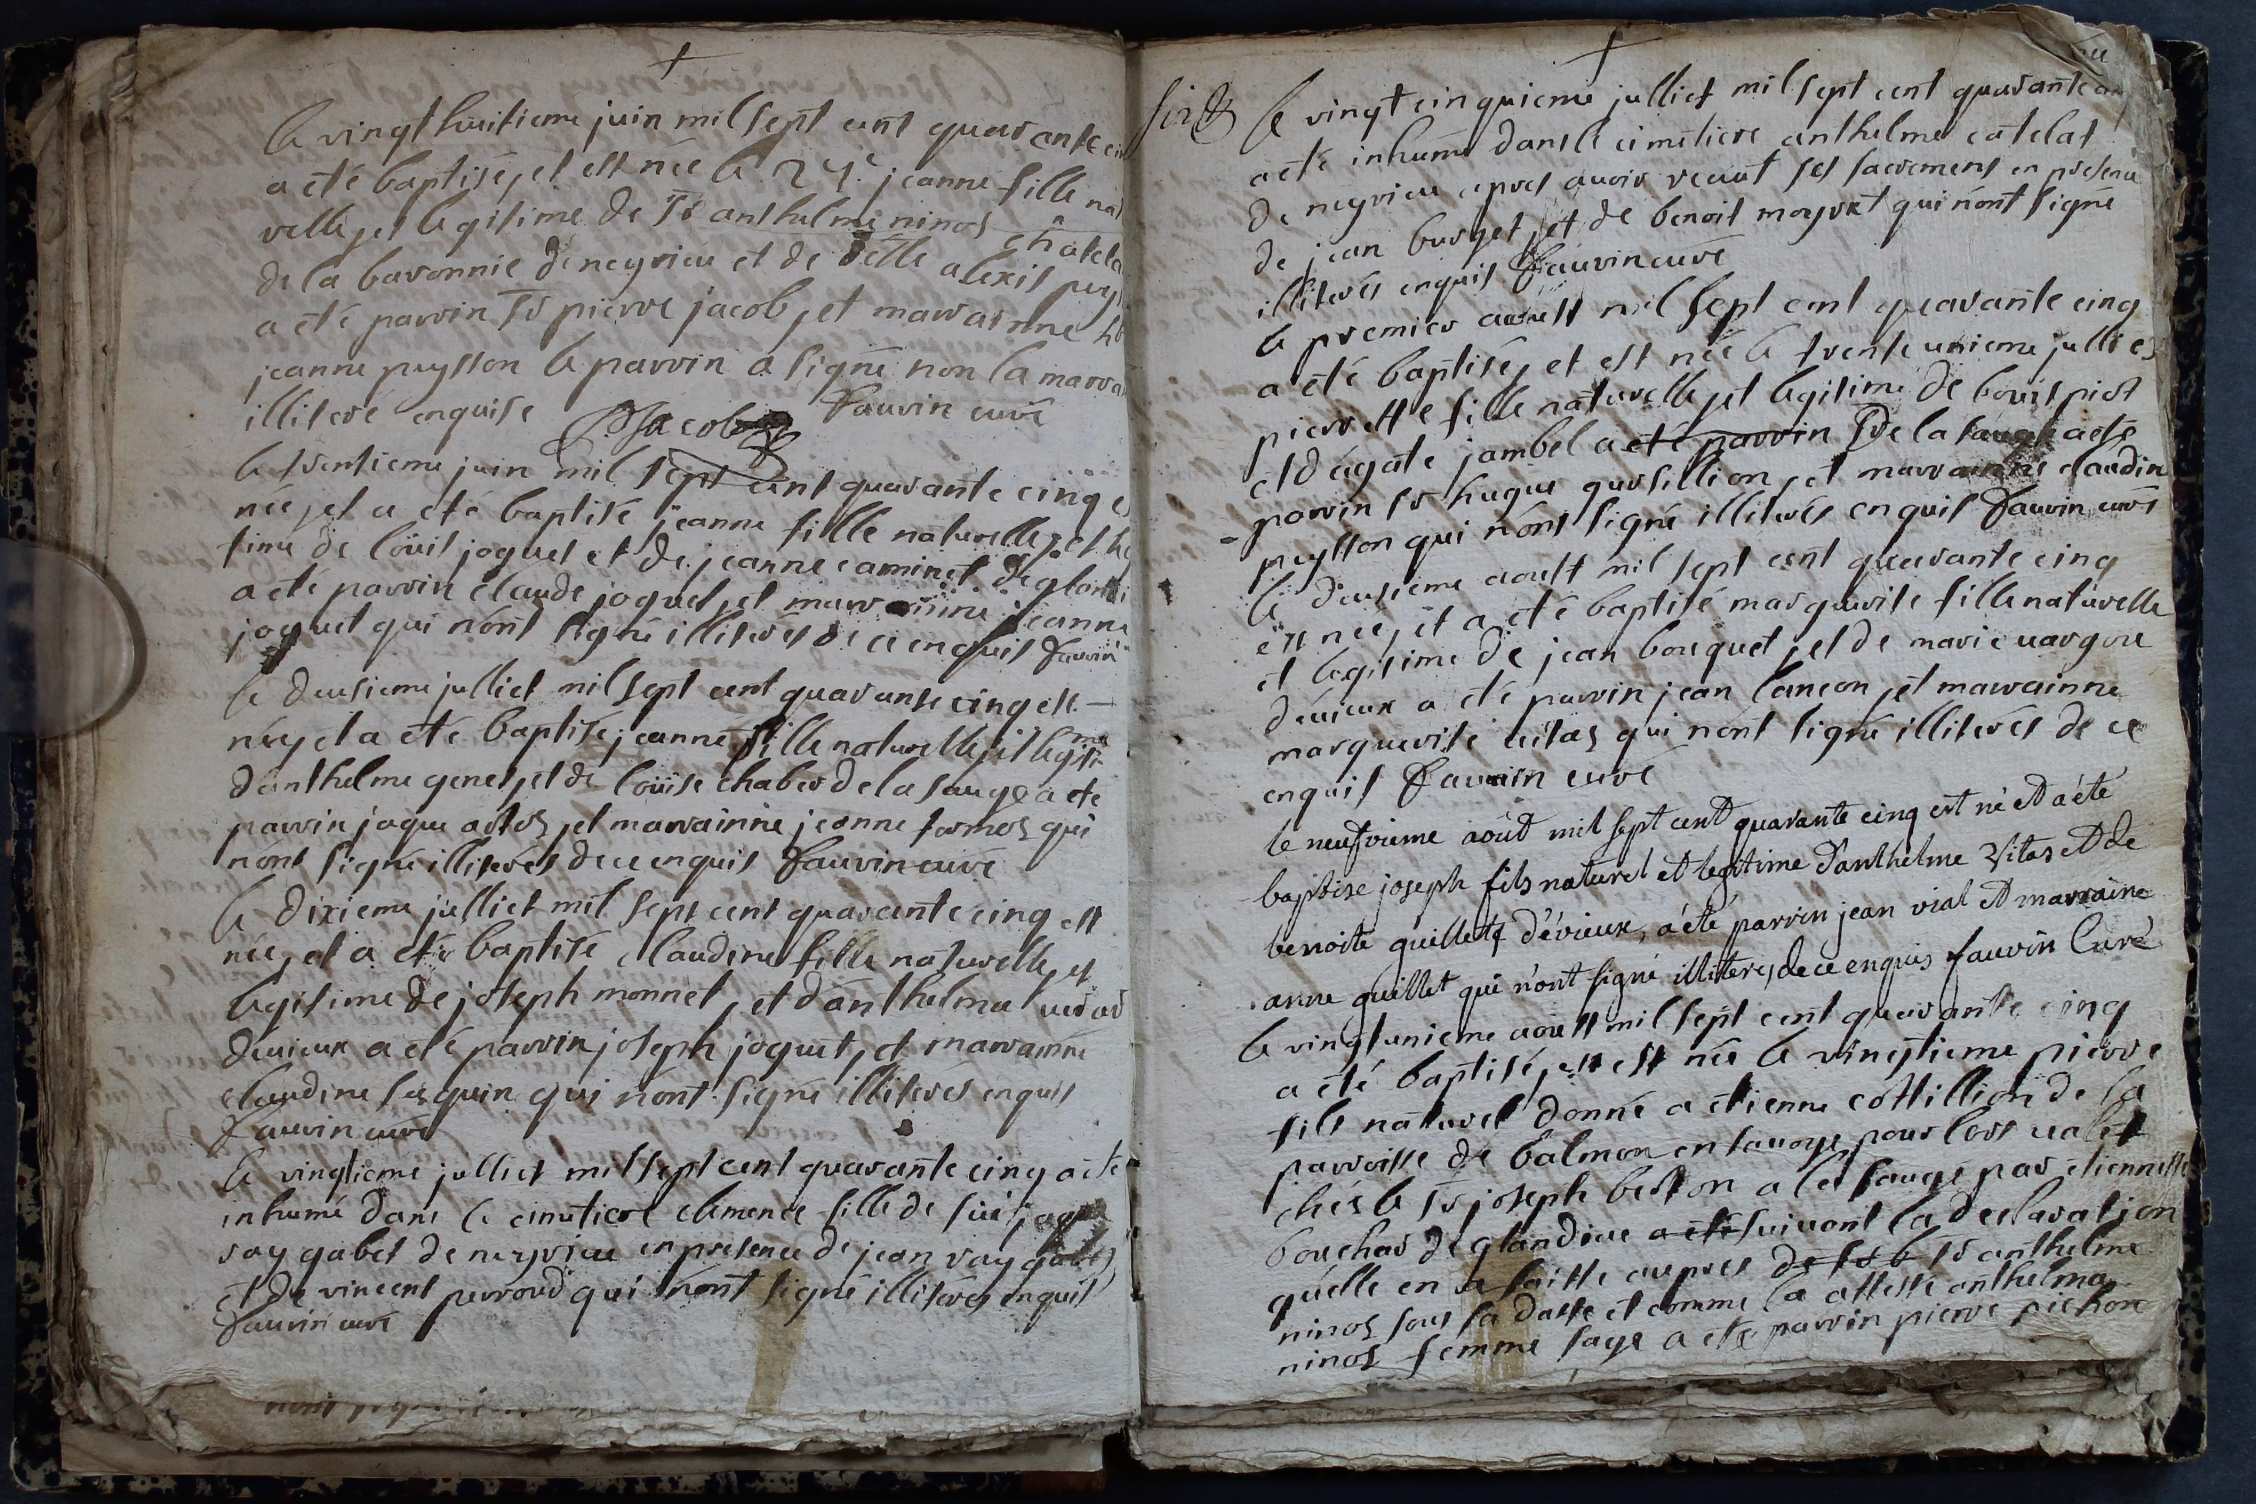 le vingt huitieme juin mil sept cent quarante cin
a été baptisé, et est née le 27e jeanne fille nat
relle, et legitime de Sr anthelme ninos châtela
de la baronnie de neyrieu et de delle alexis puys
a été parrin Sr pierre jacob, et marrainne
jeanne puysson le parrin a signé non la marra
illiteré enquise PJacob fauvin curé
le trentieme juin mil sept cent quarante cinq e
née, et a été baptisé jeanne fille naturelle, et leg
time de loüis joquet et de jeanne caminet de glandi
a été parrin claude joquet, et marrainne jeanne
joquet qui n'ont signé illiterés de ce enquis fauvin
le deusieme julliet mil sept cent quarante cinq est
née, et a été baptisé, jeanne fille naturelle, et legitime
d'anthelme genet, et de loüise chaber de la sauge a été
parrin jaque actos, et marrainne jeanne tornos qui
n'ont signé illiterés de ce enquis fauvin curé
le dixieme julliet mil sept cent quarante cinq est
née, et a été baptisé claudine fille naturelle, et
legitime de joseph monnet, et d'anthelma
d'euieux a été parrin joseph joquet, et marrainne
claudine seguin qui n'ont signé illiterés enquis
fauvin curé
le vingtieme julliet mil sept cent quarante cinq a été
inhumé dans le cimetiere clemence fille de jaque
ray gabet de neyrieu en presence de jean ray gabet
et de vincent perroud qui n'ont signé illiterés enquis
fauvin curé
le vingt cinquieme julliet mil sept cent quarante
a été inhumé dans le cimetiere anthelme catelat
de neyrieu apres avoir recut ses sacremens en presence
de jean burget, et de benoit moyret qui n'ont signé
illiterés enquis fauvin curé
le premier aoust mil sept cent quarante cinq
a été baptisé, et est née le trente unieme julliet
pierrette fille naturelle, et legitime de piot
et d'agate jambel a été parrin de la sauge a été
parrin Sr hugue gursillion, et marrainne claudine
puysson qui n'ont signé illiterés enquis fauvin curé
le deusieme aoust mil sept cent quarante cinq
est née, et a été baptisé marguerite fille naturelle
et legitime de jean bouquet, et de marie vargou
d'euieux a été parrin jean lancon, et marrainne
marguerite uitas qui n'ont signé illiterés de ce
enquis fauvin curé
le neufvieme aoüt mil sept cent quarante cinq est né et a été
baptise joseph fils naturel et legitime d'anthelme Vitas et de
benoite guillet d'évieux, a été parrin jean vial et marraine
anne guillet qui n'ont signé illiterés, de ce enquis fauvin Curé
le vingt unieme aoust mil sept cent quarante cinq
a été baptisé, et est née le vingtieme pierre
fils naturel donné a etienne cottillion de la
parroisse de balmon en savoye pour lors valet
chés le Sr joseph berton a la sauge par etiennette
bouchar de glandieu a été suivant la declaration
qu'elle en a faitte aupres de Sr anthelme
ninos sous sa datte et comme la atteste anthelma
ninos femme sage a été parrin pierre pichon